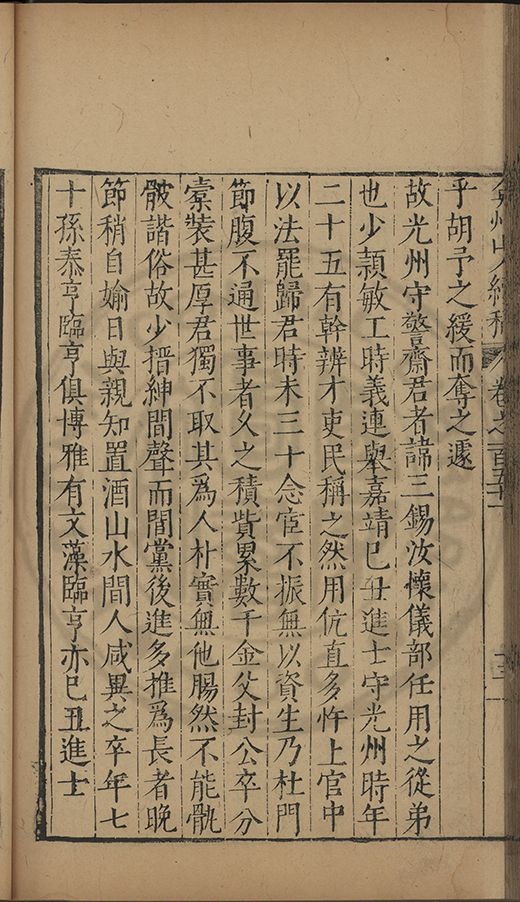 弇州山人續稿 卷之一百五十一 十三
乎胡予之緩而奪之遽
故光州守警齋君者諱三錫汝懷儀部任用之從弟
也少頴敏工時義連舉嘉靖己丑進士守光州時年
二十五有幹辨才吏民稱之然用伉直多忤上官中
以法罷歸君時未三十念宦不振無以資生乃杜門
節腹不通世事者久之積貲累數千金父封公卒分
槖裝甚厚君獨不取其爲人朴實無他腸然不能骩
骳諧俗故少搢紳間聲而閭黨後進多推爲長者晚
節稍自媮日與親知置酒山水間人咸異之卒年七
十孫泰亨臨亨俱博雅有文藻臨亨亦己丑進士